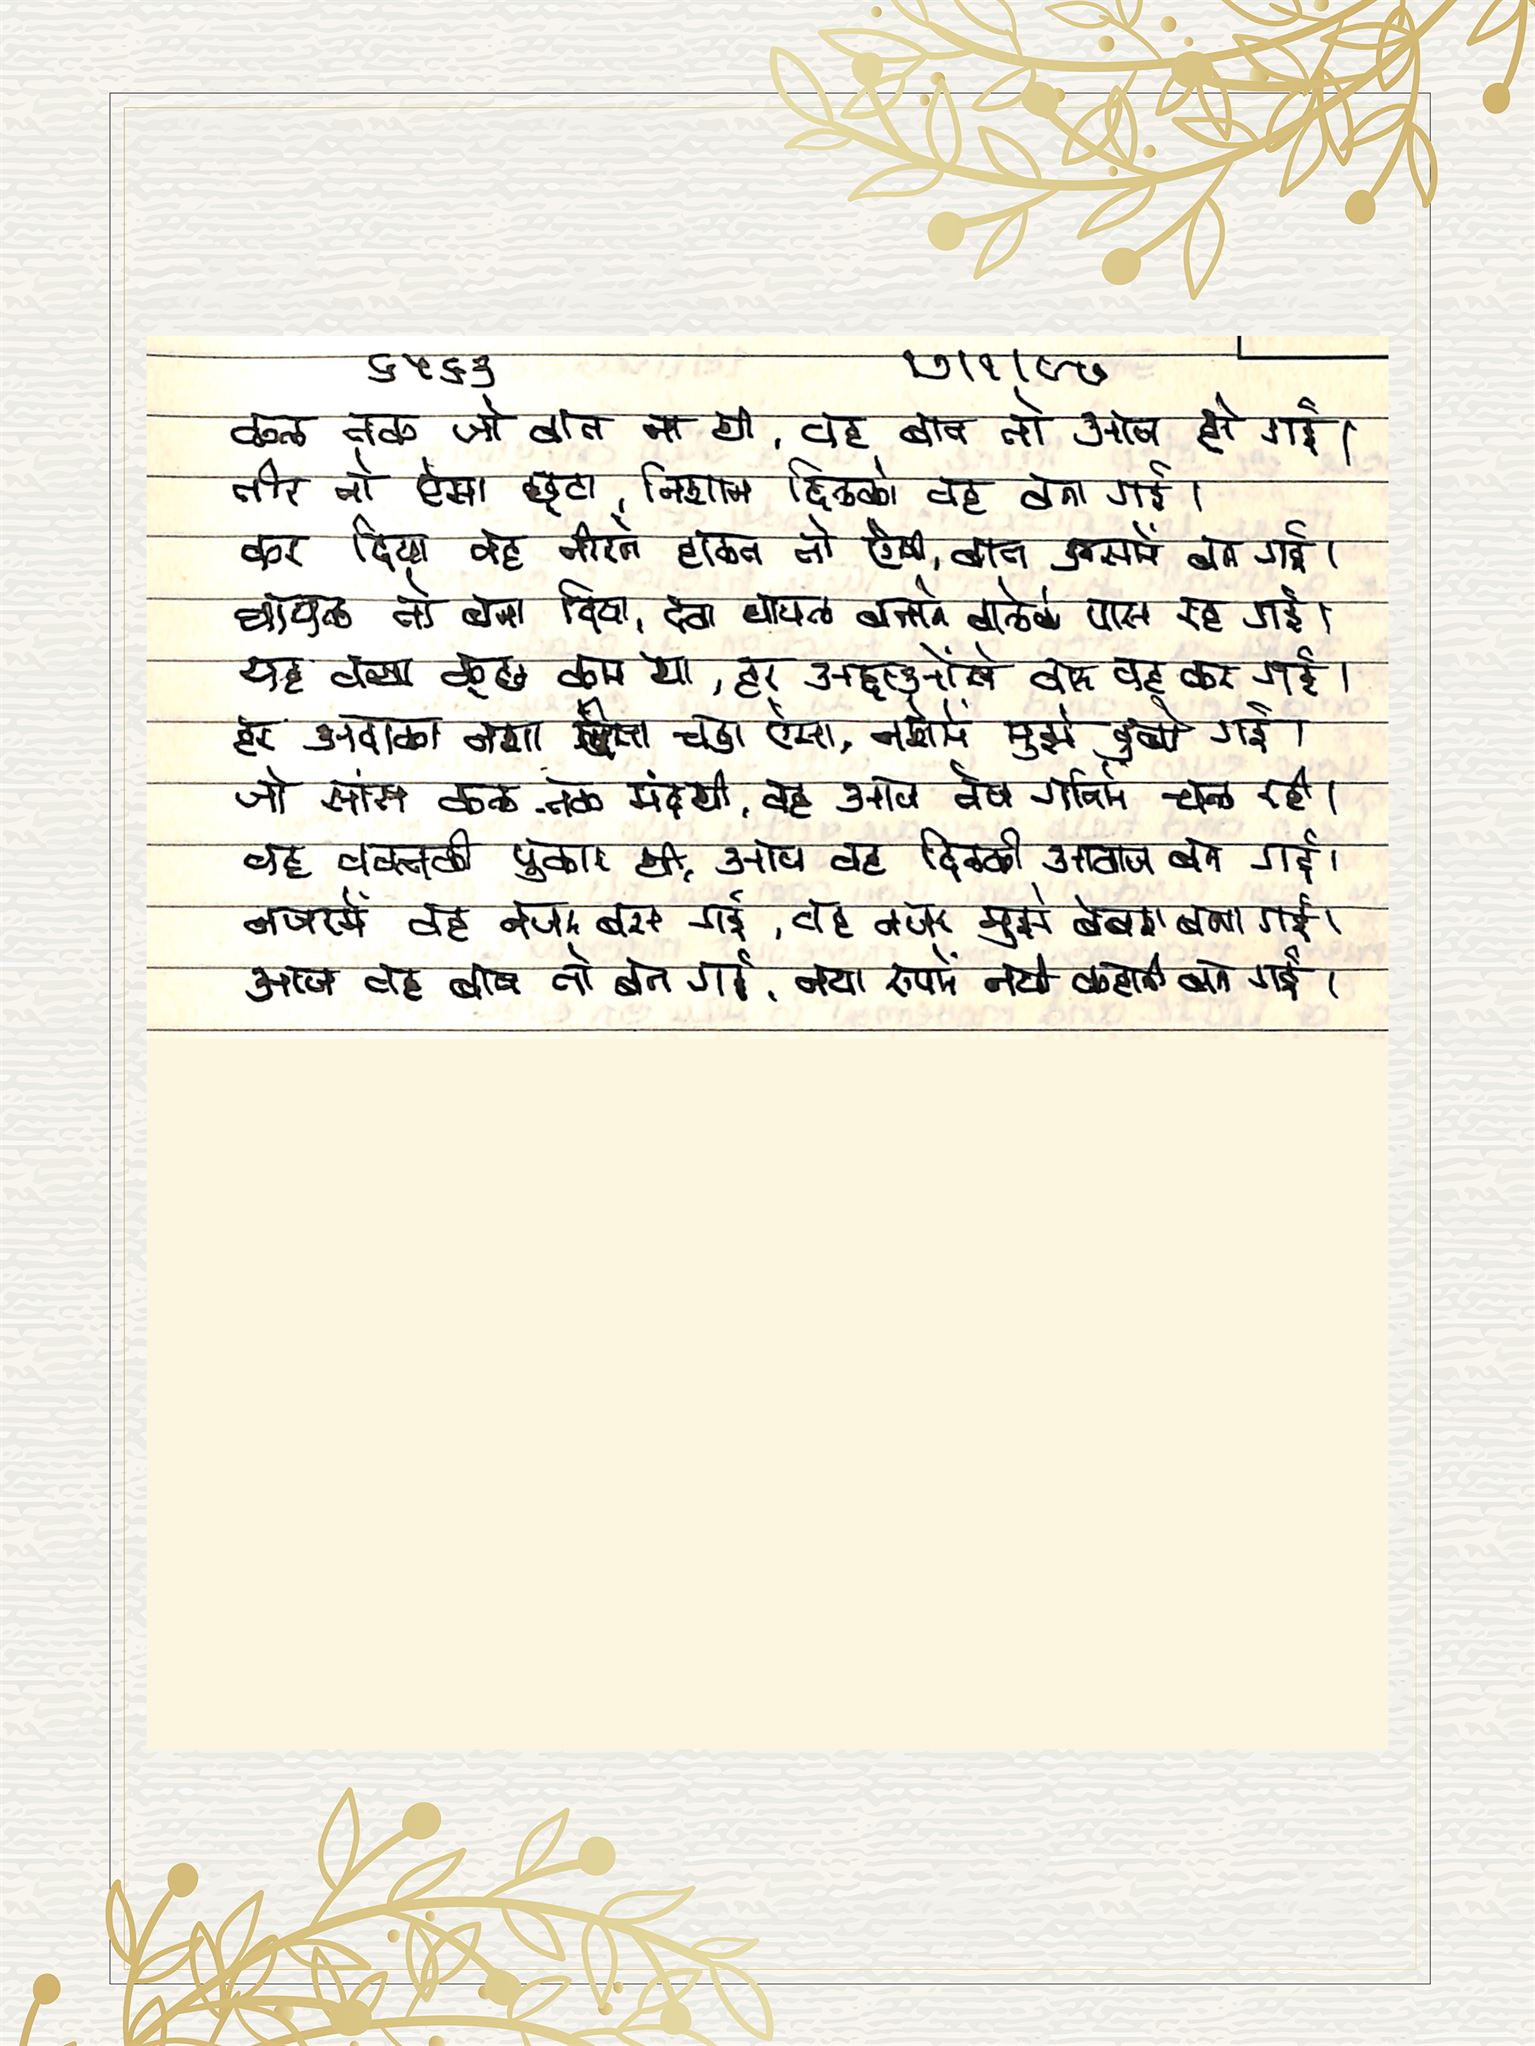 ६५६३ १७।१।८७
कल तक जो बात ना थी, वह बात तो आज हो गई।
तीर तो ऐसा छूटा, निशान दिलको वह बना गई।
कर दिया वह तीरने हालत तो ऐसी, बात उसमें बन गई।
घायल तो बना दिया, दवा घायल बनाने वालेके पास रह गई।
यह क्या कुछ कम था, हर वार वह कर गई।
हर अदाका नशा चड़ा ऐसा, नशेमें मुझे डुबो गई।
जो सांस कल तक मंद थी, वह आज तेज गतिमें चल रही।
वह वक्तकी पुकार थी, आज वह दिलकी आवाज बन गई।
नजरमें वह नजर बस गई, वह नजर मुझे बेबस बना गई।
आज वह बात तो बन गई, नया रुपमें नयी कहानी बन गई।